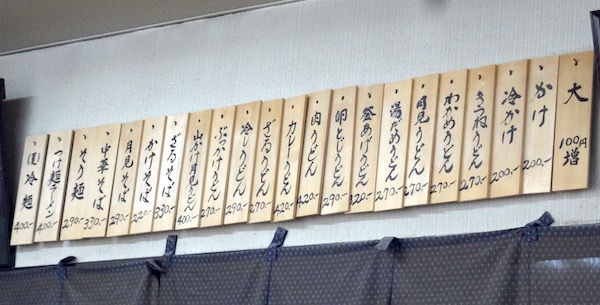 大 100円増
かけ 200.-
冷かけ 200.-
きつねうどん 270.-
わかめうどん 270.-
月見うどん 270.-
湯だめうどん 270.-
釜あげうどん 320.-
卵とじうどん 290.-
肉うどん 420.-
カレーうどん 420.-
ざるうどん 270.-
冷しうどん 290.-
ぶっかけうどん 270.-
山かけ月見うどん 400.-
ざるそば 330.-
かけそば 220.-
月見そば 290.-
中華そば 330.-
そり麺 290.-
つけ麺ラーメン 400.-
冷麺 400.-